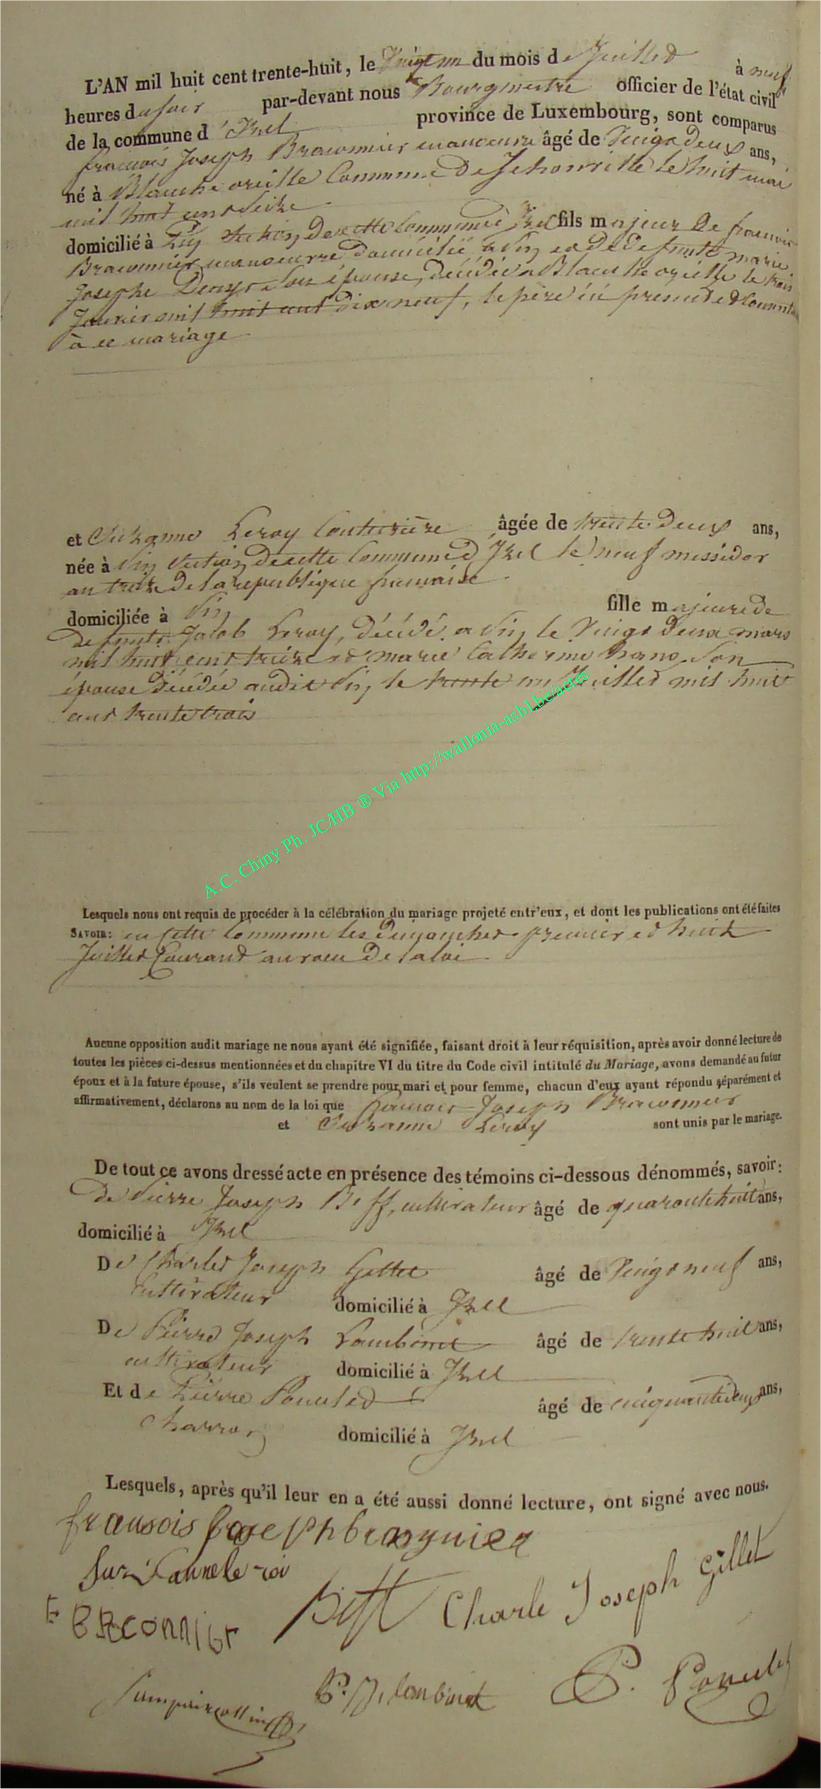 L'AN mil huit cent trente-huit, le Vingt un du mois de Juillet à neuf
heures du soir par-devant nous Bourgmestre officier de l'état civil
de la commune d'Izel province de Luxembourg, sont comparus
françois Joseph Braconnier manoeuvre âgé de Vingt Deux ans,
né à Blanche oreille Commune De Jehonville le huit mai
mil huit cent seize
domicilié à Pin Section De cette Commune d'Izel fils majeur De françois
Braconnier manoeuvre domicilié à Pin et de Defunte marie
Josephe Denys Son épouse, décédée à Blanche oreille le trois
Janvier mil huit cent dix neuf, le père ici présent et Consentant
à ce mariage
et Suzanne Leroy Couturière âgée de trente Deux ans,
née à Pin Section De cette Commune d'Izel le neuf messidor
an treize De la république française
domiciliée à Pin fille majeure de
Defunts Jacob Leroy, décédé à Pin le Vingt Deux mars
mil huit cent treize et marie Catherine Son
épouse Décédée audit Pin le trente un Juillet mil huit
cent trente trois
A.C. Chiny Ph. JC/HB ® Via http://wallonia-asbl.be
Lesquels nous ont requis de procéder à la célébration du mariage projeté entr'eux, et dont les publications ont été faites
SAVOIR: en cette Commune les Dimanches premier et huit
Juillet Courant au voeu De la loi
Aucune opposition audit mariage ne nous ayant été signifiée, faisant droit à leur réquisition, après avoir donné lecture de
toutes les pièces ci-dessus mentionnées et du chapitre VI du titre du Code civil intitulé du Mariage, avons demandé au futur
époux et à la future épouse, s'ils veulent se prendre pour mari et pour femme, chacun d'eux ayant répondu séparément et
affirmativement, déclarons au nom de la loi que françois Joseph Braconnier
et Suzanne Leroy sont unis par le mariage.
De tout ce avons dressé acte en présence des témoins ci-dessous dénommés, savoir:
De Pierre Joseph Biff, cultivateur âgé de quarante huit ans,
domicilié à Izel
De Charles Joseph Gillet âgé de Vingt neuf ans,
Cultivateur domicilié à Izel
De Pierre Joseph Lambinet âgé de trente huit ans,
cultivateur domicilié à Izel
Et de Pierre Poncelet âgé de cinquante deux ans,
Charron domicilié à Izel
Lesquels, après qu'il leur en a été aussi donné lecture, ont signé avec nous.
fransois Josephbragnier
Suzanne le roi
Biff Charle Joseph Gillet
F Braconnier
P. J. Lambinet P. Poncelet